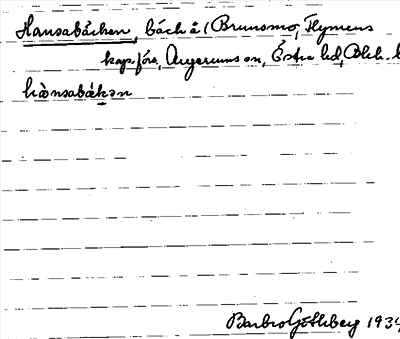 Hansabäcken, bäck å (Brunsmo, Flymens
kap.förs, Augerums sn, Östra hd, Blek. l
hànsabäkən
Barbro Götlberg 1934